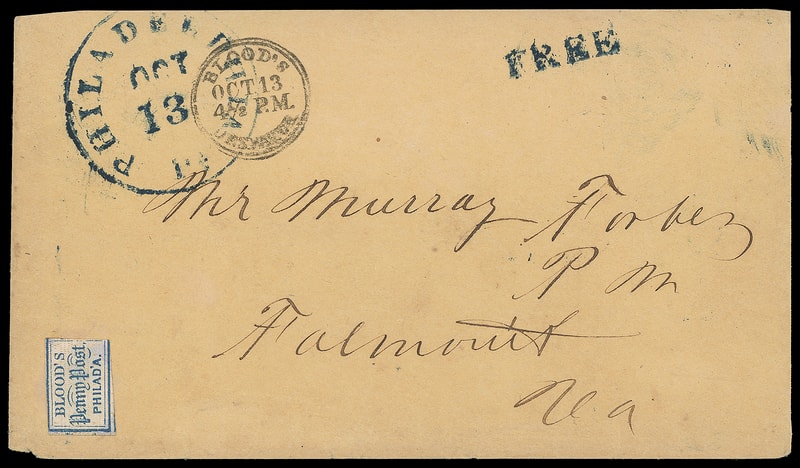 PHILADEL PHIA
OCT
13
BLOOD'S
OCT.13
4½ P.M.
DESPATCH
FREE
Mr Murray Forbes
P M
Falmouth
Va
BLOOD'S
Penny Post.
PHILAD'A.